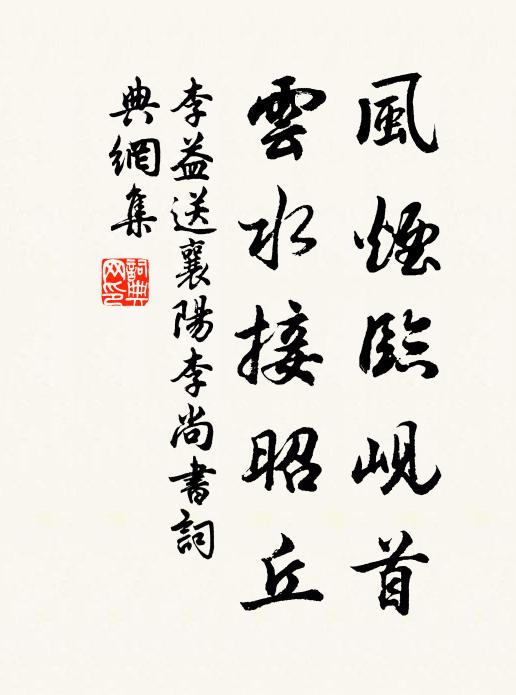 風煙臨峴首
雲水接昭丘
李益送襄陽李尚書詞
典網集
詞典網印